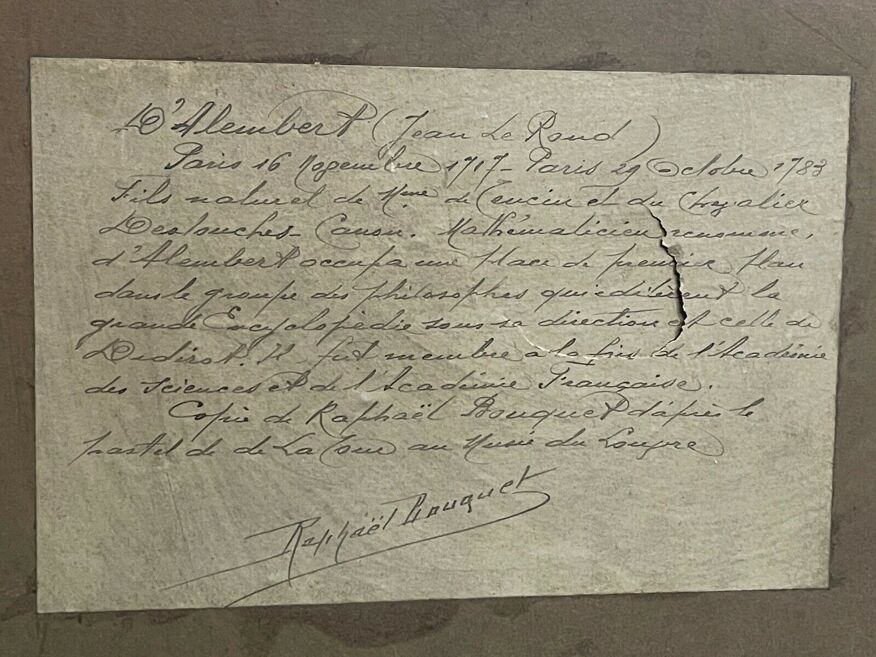 D'Alembert (Jean Le Rond)
Paris 16 Novembre 1717 - Paris 29 Octobre 1783
Fils naturel de Mme de Tencin et du Chevalier
Destouches-Canon. Mathématicien renommé,
d'Alembert occupa une place de premier plan
dans le groupe des philosophes qui éditèrent la
grande Encyclopédie sous sa direction et celle de
Diderot. Il fut membre à la fois de l'Académie
des Sciences et de l'Académie Française.
Copie de Raphaël Bouquet d'après le
pastel de de La Tour au Musée du Louvre
Raphaël Bouquet